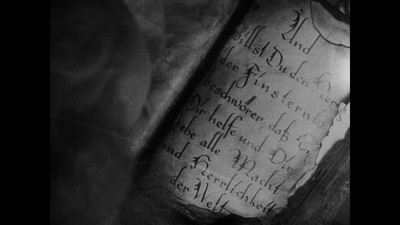 Und
willst Du den Herrn
der Finsternis
beschwörer daß Er
Dir helfe und Dir
gebe alle Macht
und Herrlichkeit
der Welt